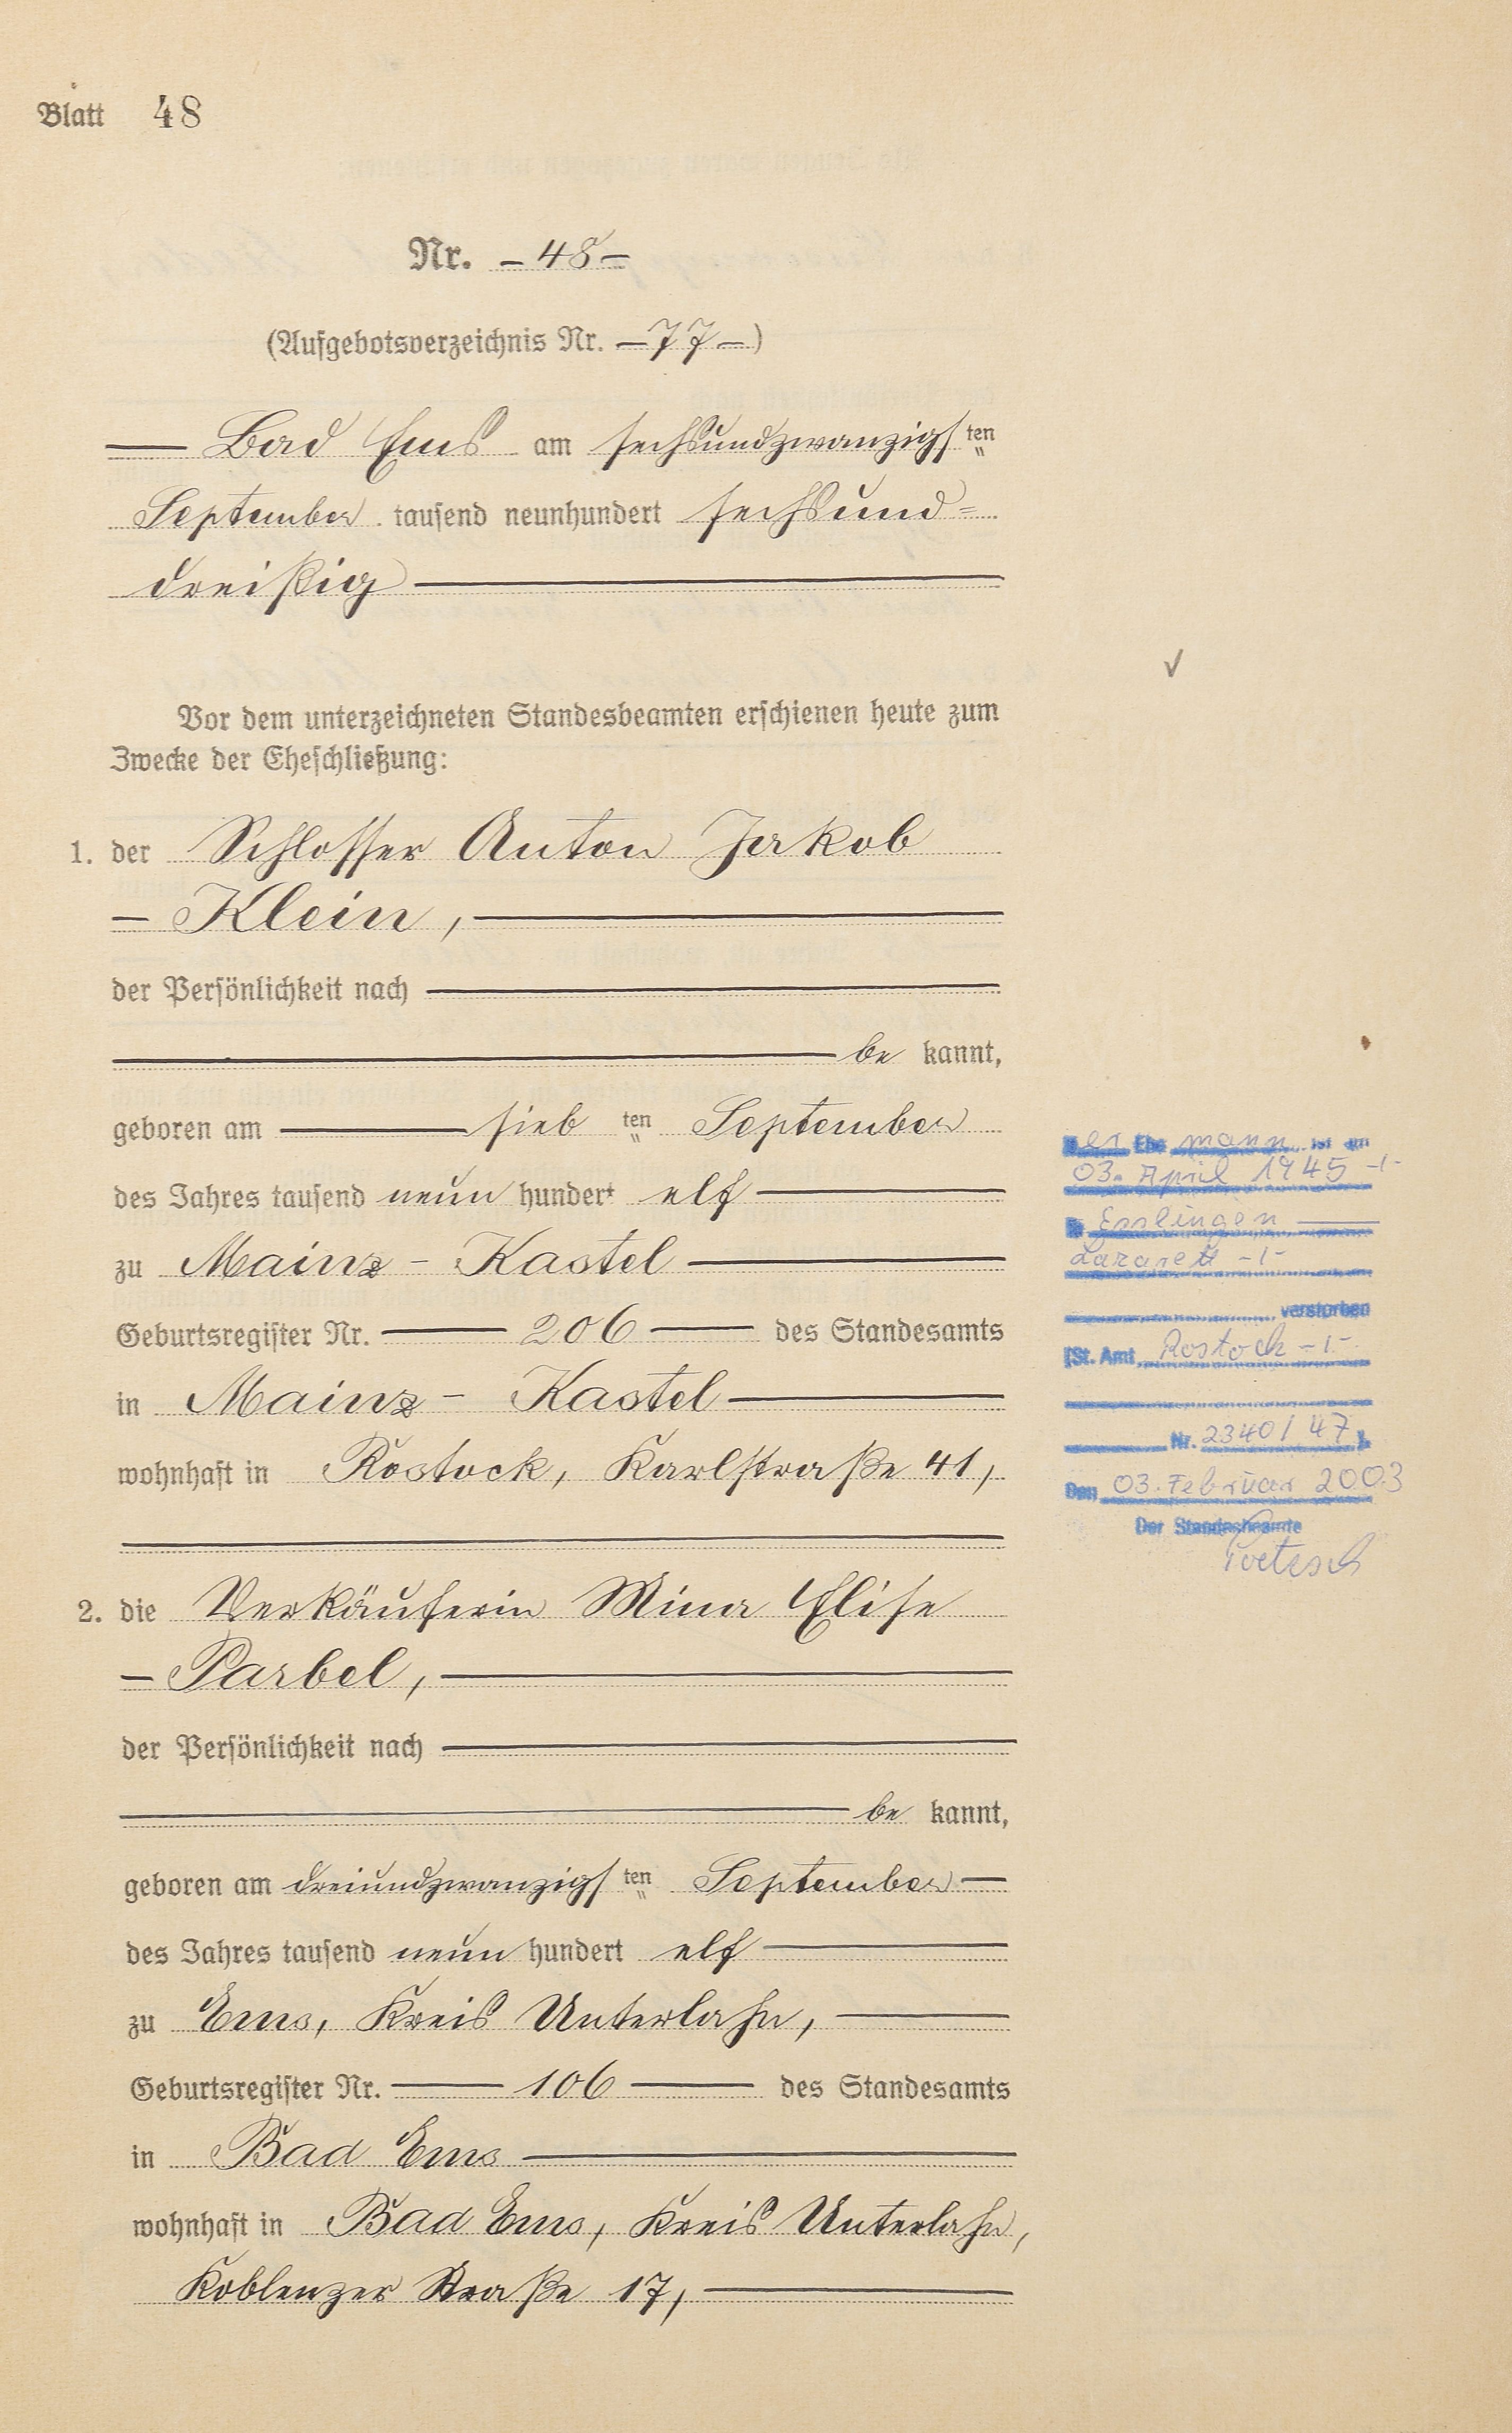 Blatt 48
Nr. – 48 –
(Aufgebotsverzeichnis Nr. – 77 – )
— Bad Ems am sechsundzwanzigs ten
September tausend neunhundert sechsund=
dreißig —
Vor dem unterzeichneten Standesbeamten erschienen heute zum
Zwecke der Eheschließung:
1. der Schlosser Anton Jakob
– Klein, —
der Persönlichkeit nach —
— be kannt,
geboren am — sieb ten September
des Jahres tausend neun hundert elf —
zu Mainz - Kastel —
Geburtsregister Nr. — 206 — des Standesamts
in Mainz - Kastel —
wohnhaft in Rostock, Karlstraße 41,
2. die Verkäuferin Mina Elise
– Parbel, —
der Persönlichkeit nach —
— be kannt,
geboren am dreiundzwanzigs ten September —
des Jahres tausend neun hundert elf —
zu Ems, Kreis Unterlahn, —
Geburtsregister Nr. — 106 — des Standesamts
in Bad Ems —
wohnhaft in Bad Ems, Kreis Unterlahn,
Koblenzer Straße 17, —
Der Ehe mann ist am
03. April 1945 -/-
in Esslingen —
Lazarett -/-
verstorben
(St. Amt Rostock -/-
Nr. 2340/47 ).
Den 03. Februar 2003
Der Standesbeamte